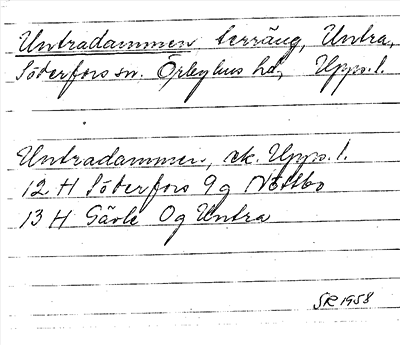 Untradammen terräng, Untra,
Söderfors sn. Örbyhus hd, Upps. l.
Untradammen, ek. Upps. l.
12 H Söderfors 9 g Nöttbo
13 H Gävle 0 g Untra
SR 1958